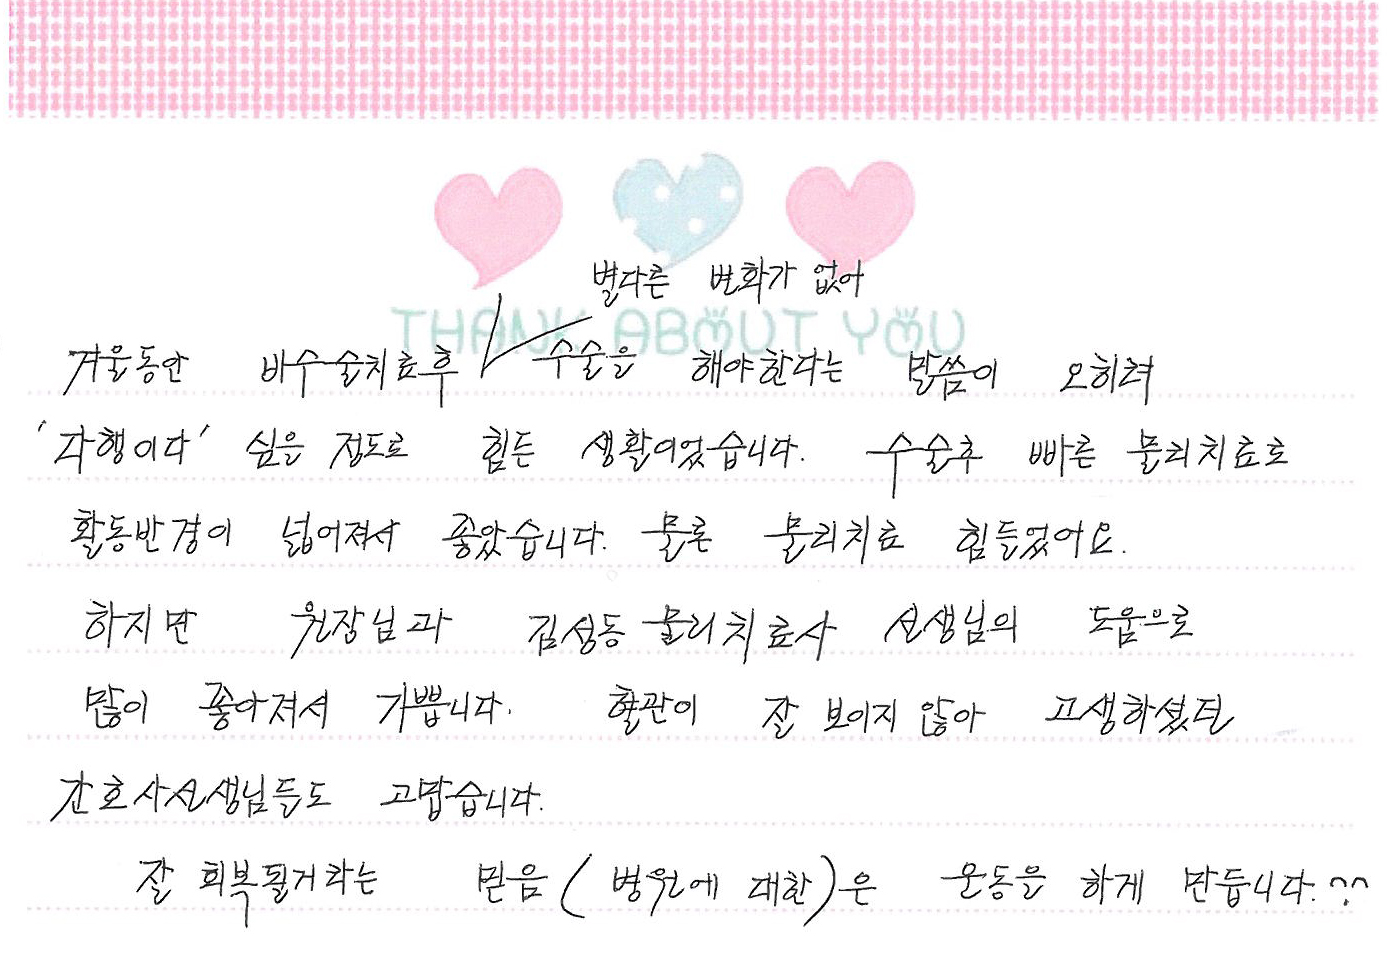 THANK ABOUT YOU
별다른 변화가 없어
겨울동안 비수술치료후 수술을 해야한다는 말씀이 오히려
'다행이다' 싶을 정도로 힘든 생활이었습니다. 수술후 빠른 물리치료로
활동반경이 넓어져서 좋았습니다. 물론 물리치료 힘들었어요.
하지만 원장님과 김성동 물리치료사 선생님의 도움으로
많이 좋아져서 기쁩니다. 혈관이 잘 보이지 않아 고생하셨던
간호사선생님들도 고맙습니다.
잘 회복될거라는 믿음(병원에 대한)은 운동을 하게 만듭니다.^^